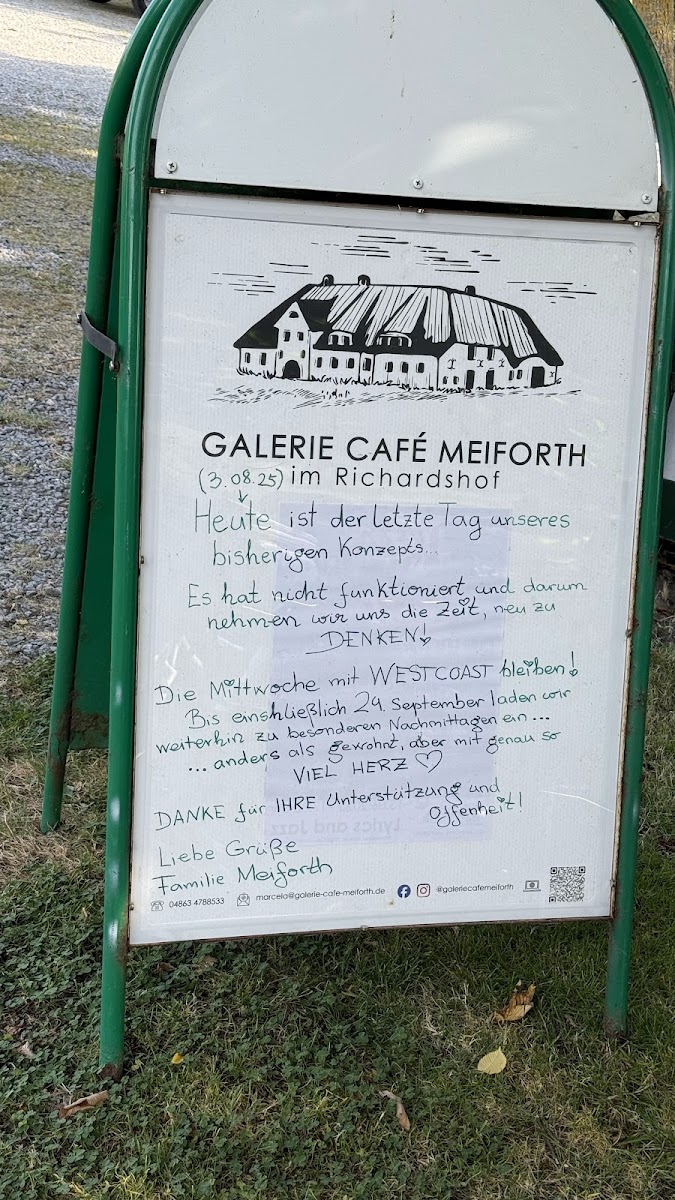 GALERIE CAFÉ MEIFORTH
(3.08.25) im Richardshof
Heute ist der letzte Tag unseres
bisherigen Konzepts...
Es hat nicht funktioniert und darum
nehmen wir uns die Zeit, neu zu
DENKEN!
Die Mittwoche mit WESTCOAST bleiben!
Bis einschließlich 24. September laden wir
weiterhin zu besonderen Nachmittagen ein...
... anders als gewohnt, aber mit genau so
VIEL HERZ ♡
DANKE für IHRE Unterstützung und
Offenheit!
Liebe Grüße
Familie Meiforth
04863 4788533 marcelo@galerie-cafe-meiforth.de @galeriecafemeiforth
Lyrics and Jazz